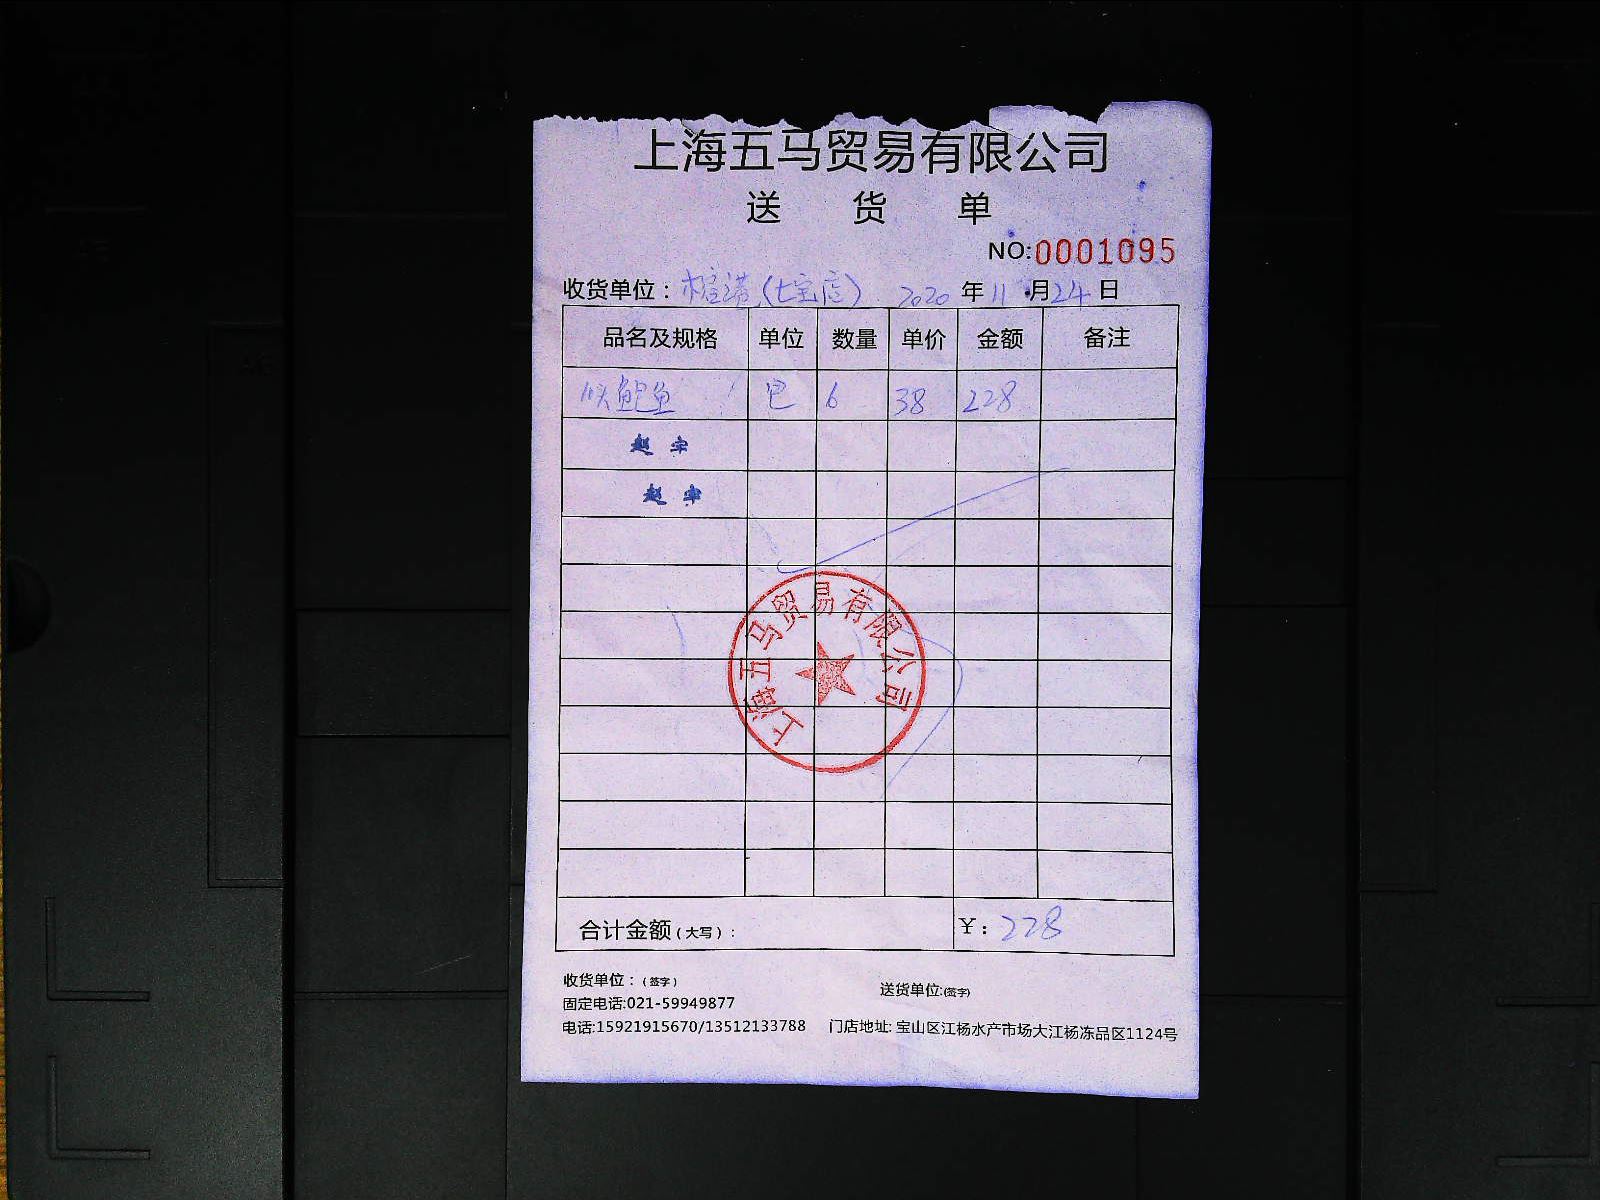 上海五马贸易有限公司
送 货 单
NO:0001095
收货单位：楦港(七宝店) 2020 年 11 月 24 日
品名及规格 单位 数量 单价 金额 备注
鲍鱼 包 6 38 228
赵 宇
赵 宇
上海五马贸易有限公司
合计金额（大写）： ¥：228
收货单位：（签字） 送货单位:(签字)
固定电话:021-59949877
电话:15921915670/13512133788 门店地址: 宝山区江杨水产市场大江杨冻品区1124号